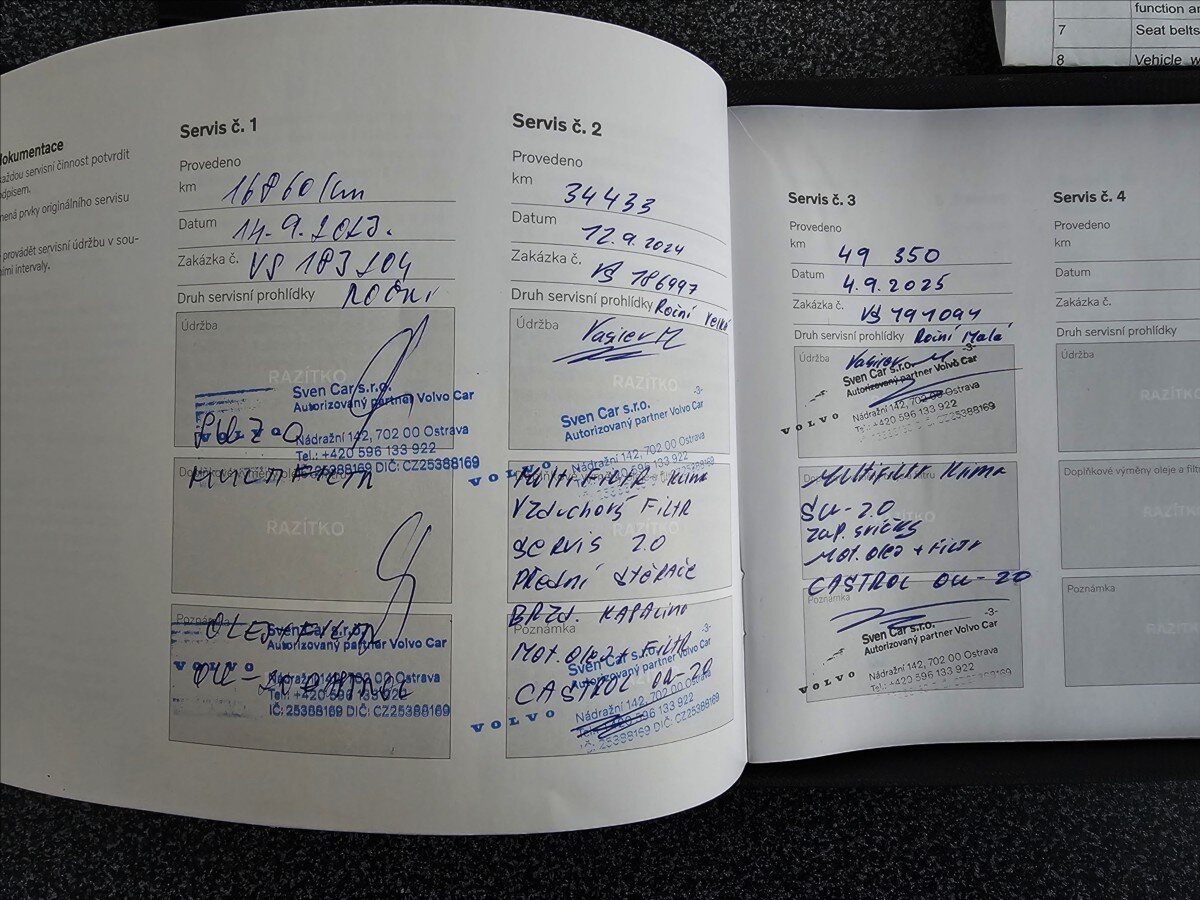 function an
7 Seat belts
8 Vehicle w
dokumentace
každou servisní činnost potvrdit
odpisem.
mená prvky originálního servisu
provádět servisní údržbu v sou-
ními intervaly.
Servis č. 1
Provedeno
km 16860 km
Datum 14.9.2023.
Zakázka č. VS 183204
Druh servisní prohlídky ROČNÍ
Údržba
RAZÍTKO
Sven Car s.r.o.
Autorizovaný partner Volvo Car
VOLVO
Nádražní 142, 702 00 Ostrava
Tel.: +420 596 133 922
IČ: 25388169 DIČ: CZ25388169
RAZÍTKO
Poznámka
Sven Car s.r.o.
Autorizovaný partner Volvo Car
VOLVO
Nádražní 142, 702 00 Ostrava
Tel.: +420 596 133 922
IČ: 25388169 DIČ: CZ25388169
Servis č. 2
Provedeno
km 34433
Datum 12.9.2024
Zakázka č. VS 186997
Druh servisní prohlídky Roční Velká
Údržba
RAZÍTKO
-3-
Sven Car s.r.o.
Autorizovaný partner Volvo Car
Nádražní 142, 702 00 Ostrava
Tel.: +420 596 133 922
VOLVO
Multifiltr Klima
Vzduchový Filtr
Servis 2.0
Přední stěrače
Brzd. kapalina
Poznámka
Mot. olej + Filtr
-3-
Sven Car s.r.o.
Autorizovaný partner Volvo Car
CASTROL OW-20
Nádražní 142, 702 00 Ostrava
Tel.: +420 596 133 922
VOLVO
IČ: 25388169 DIČ: CZ25388169
Servis č. 3
Provedeno
km 49 350
Datum 4.9.2025
Zakázka č. VS 191094
Druh servisní prohlídky Roční Malá
Údržba
-3-
Sven Car s.r.o.
Autorizovaný partner Volvo Car
VOLVO
Nádražní 142, 702 00 Ostrava
Tel.: +420 596 133 922
Multifiltr Klima
SW-2.0
Zap. svíčky
Mot. olej + Filtr
CASTROL OW-20
Poznámka
-3-
Sven Car s.r.o.
Autorizovaný partner Volvo Car
VOLVO
Nádražní 142, 702 00 Ostrava
Tel.: +420 596 133 922
Servis č. 4
Provedeno
km
Datum
Zakázka č.
Druh servisní prohlídky
Údržba
RAZÍTK
Doplňkové výměny oleje a filtru
RAZÍTK
Poznámka
RAZÍTK